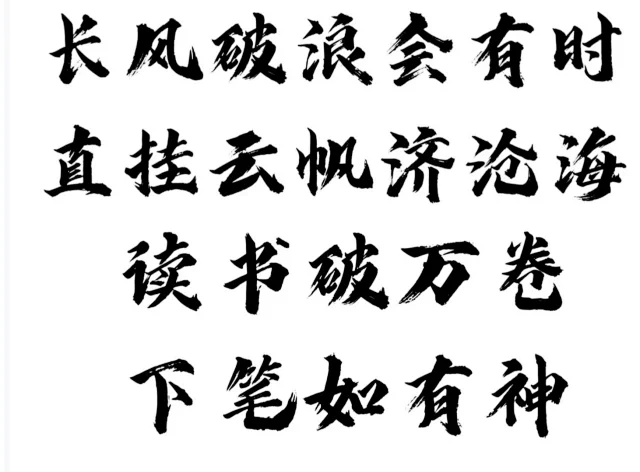 长风破浪会有时
直挂云帆济沧海
读书破万卷
下笔如有神